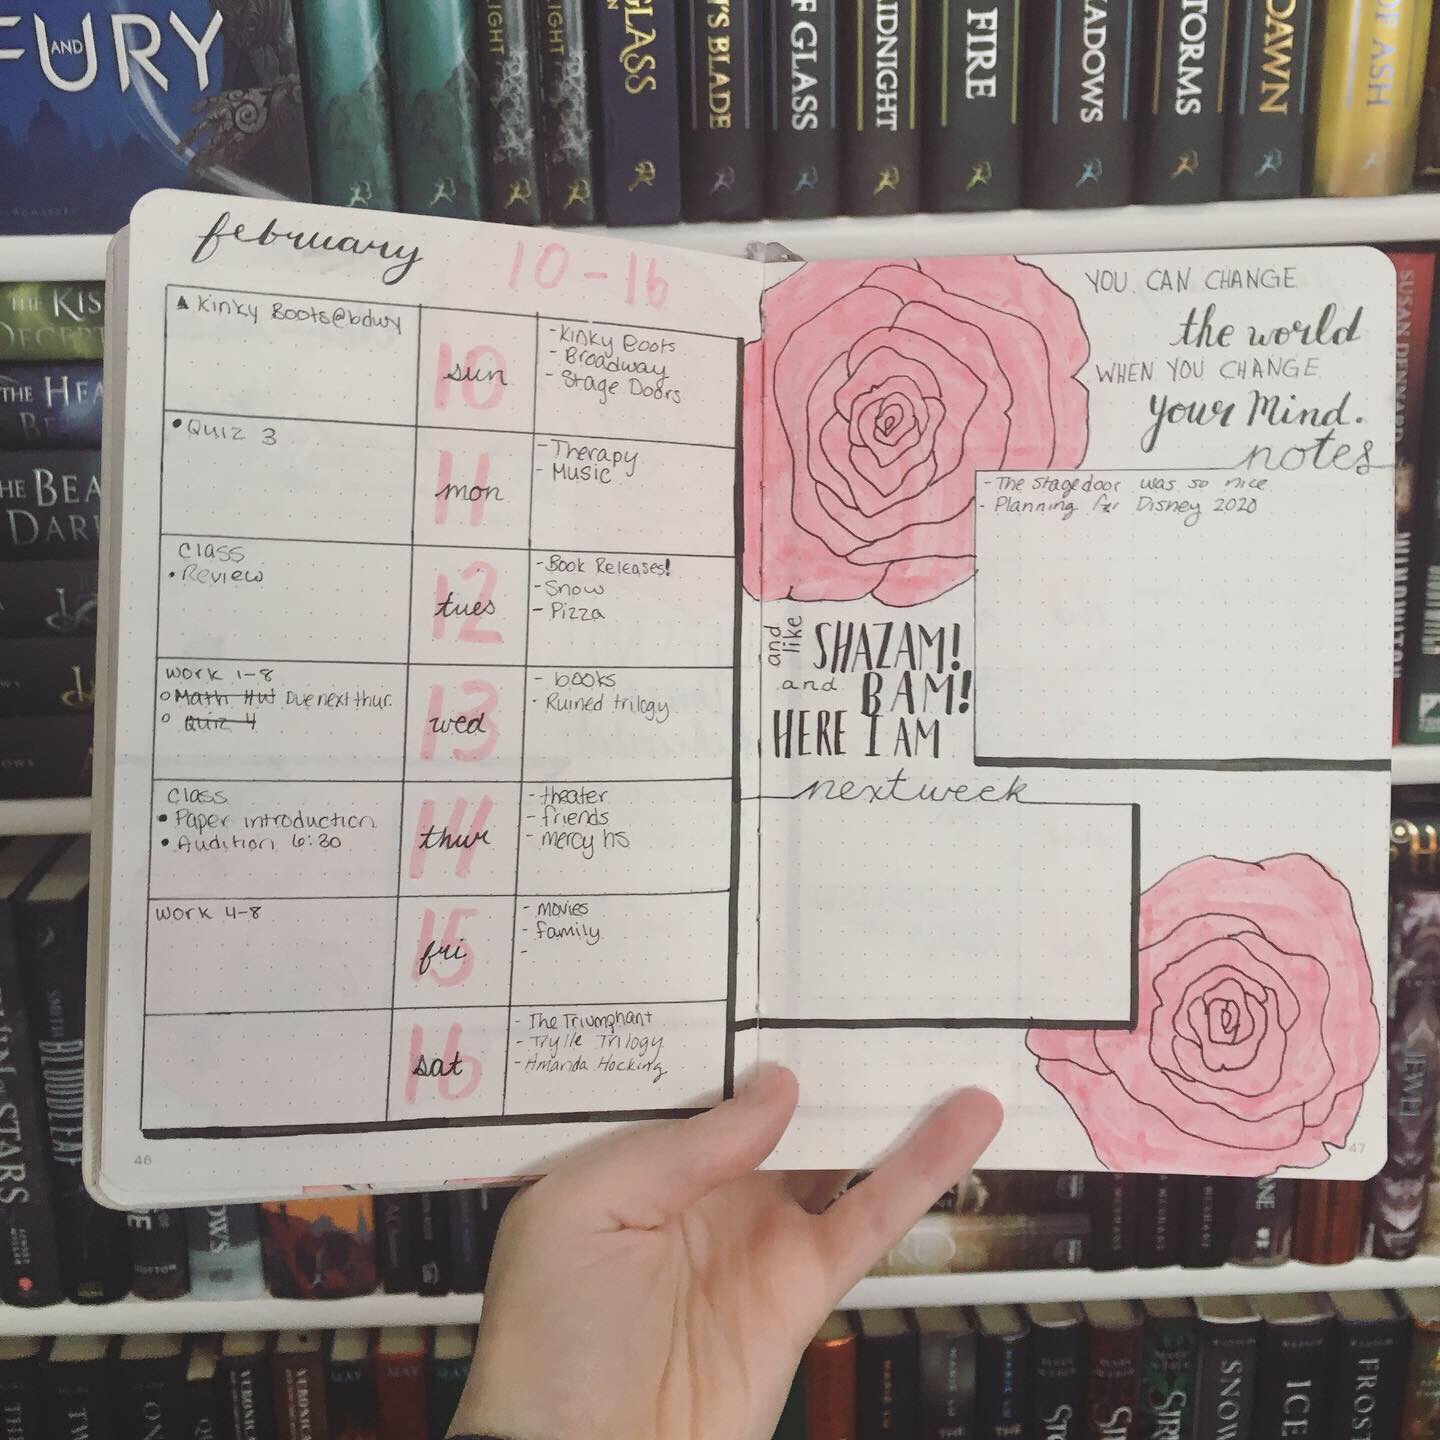 AND
FURY
LIGHT
LIGHT
GLASS
BLADE
OF GLASS
MIDNIGHT
FIRE
SHADOWS
STORMS
DAWN
OF ASH
february 10-16
▲ Kinky Boots@bdwy
10 sun
- Kinky Boots
- Broadway
- Stage Doors
• Quiz 3
11 mon
- Therapy
- Music
class
• Review
12 tues
- Book Releases!
- Snow
- Pizza
work 1-8
○ Math Hw Due next thur.
○ Quiz 4
13 wed
- books
- Ruined trilogy
class
• Paper introduction
• Audition 6:30
14 thur
- theater
- friends
- mercy hs
work 4-8
15 fri
- movies
- family
-
16 sat
- The Triumphant
- Trylle Trilogy
- Amanda Hocking
46
YOU CAN CHANGE
the world
WHEN YOU CHANGE
your Mind.
notes
- The stagedoor was so nice
- Planning for Disney 2020
and like SHAZAM!
and BAM!
HERE I AM
next week
47
THE KIS
DECEPT
THE HEA
THE BEA
DAR
SUSAN DENNARD
STARS
JEWEL
SNOW
ICE
FROST